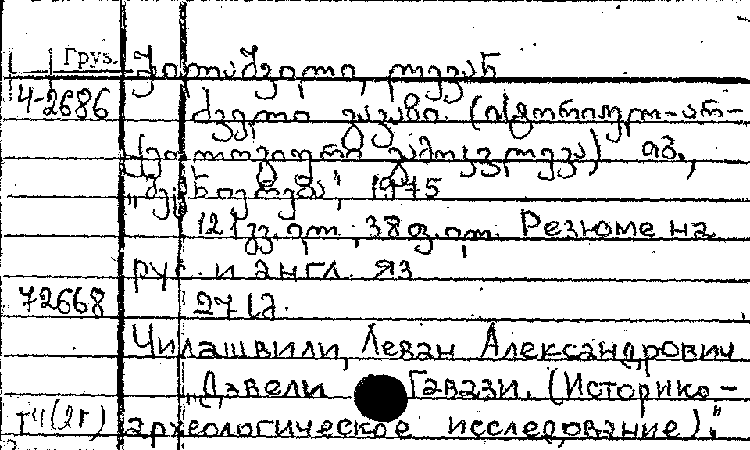 Груз. ჭილაშვილი, ლევან
4-2686 ძველი გავაზი. (ისტორიულ-არ-
ქეოლოგიური გამოკვლევა) თბ.,
„მეცნიერება", 1975
121გვ.ილ., 38ფ.ილ. Резюме на
рус. и англ. яз
72668 271მ.
Чилашвили, Леван Александрович
„Дзвели Гавази. (Историко-
археологическое исследование)."